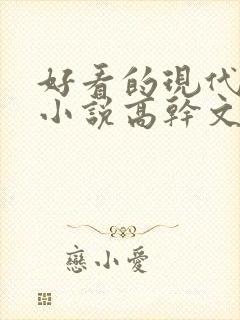 好看的現代
小說高幹文
戀小愛